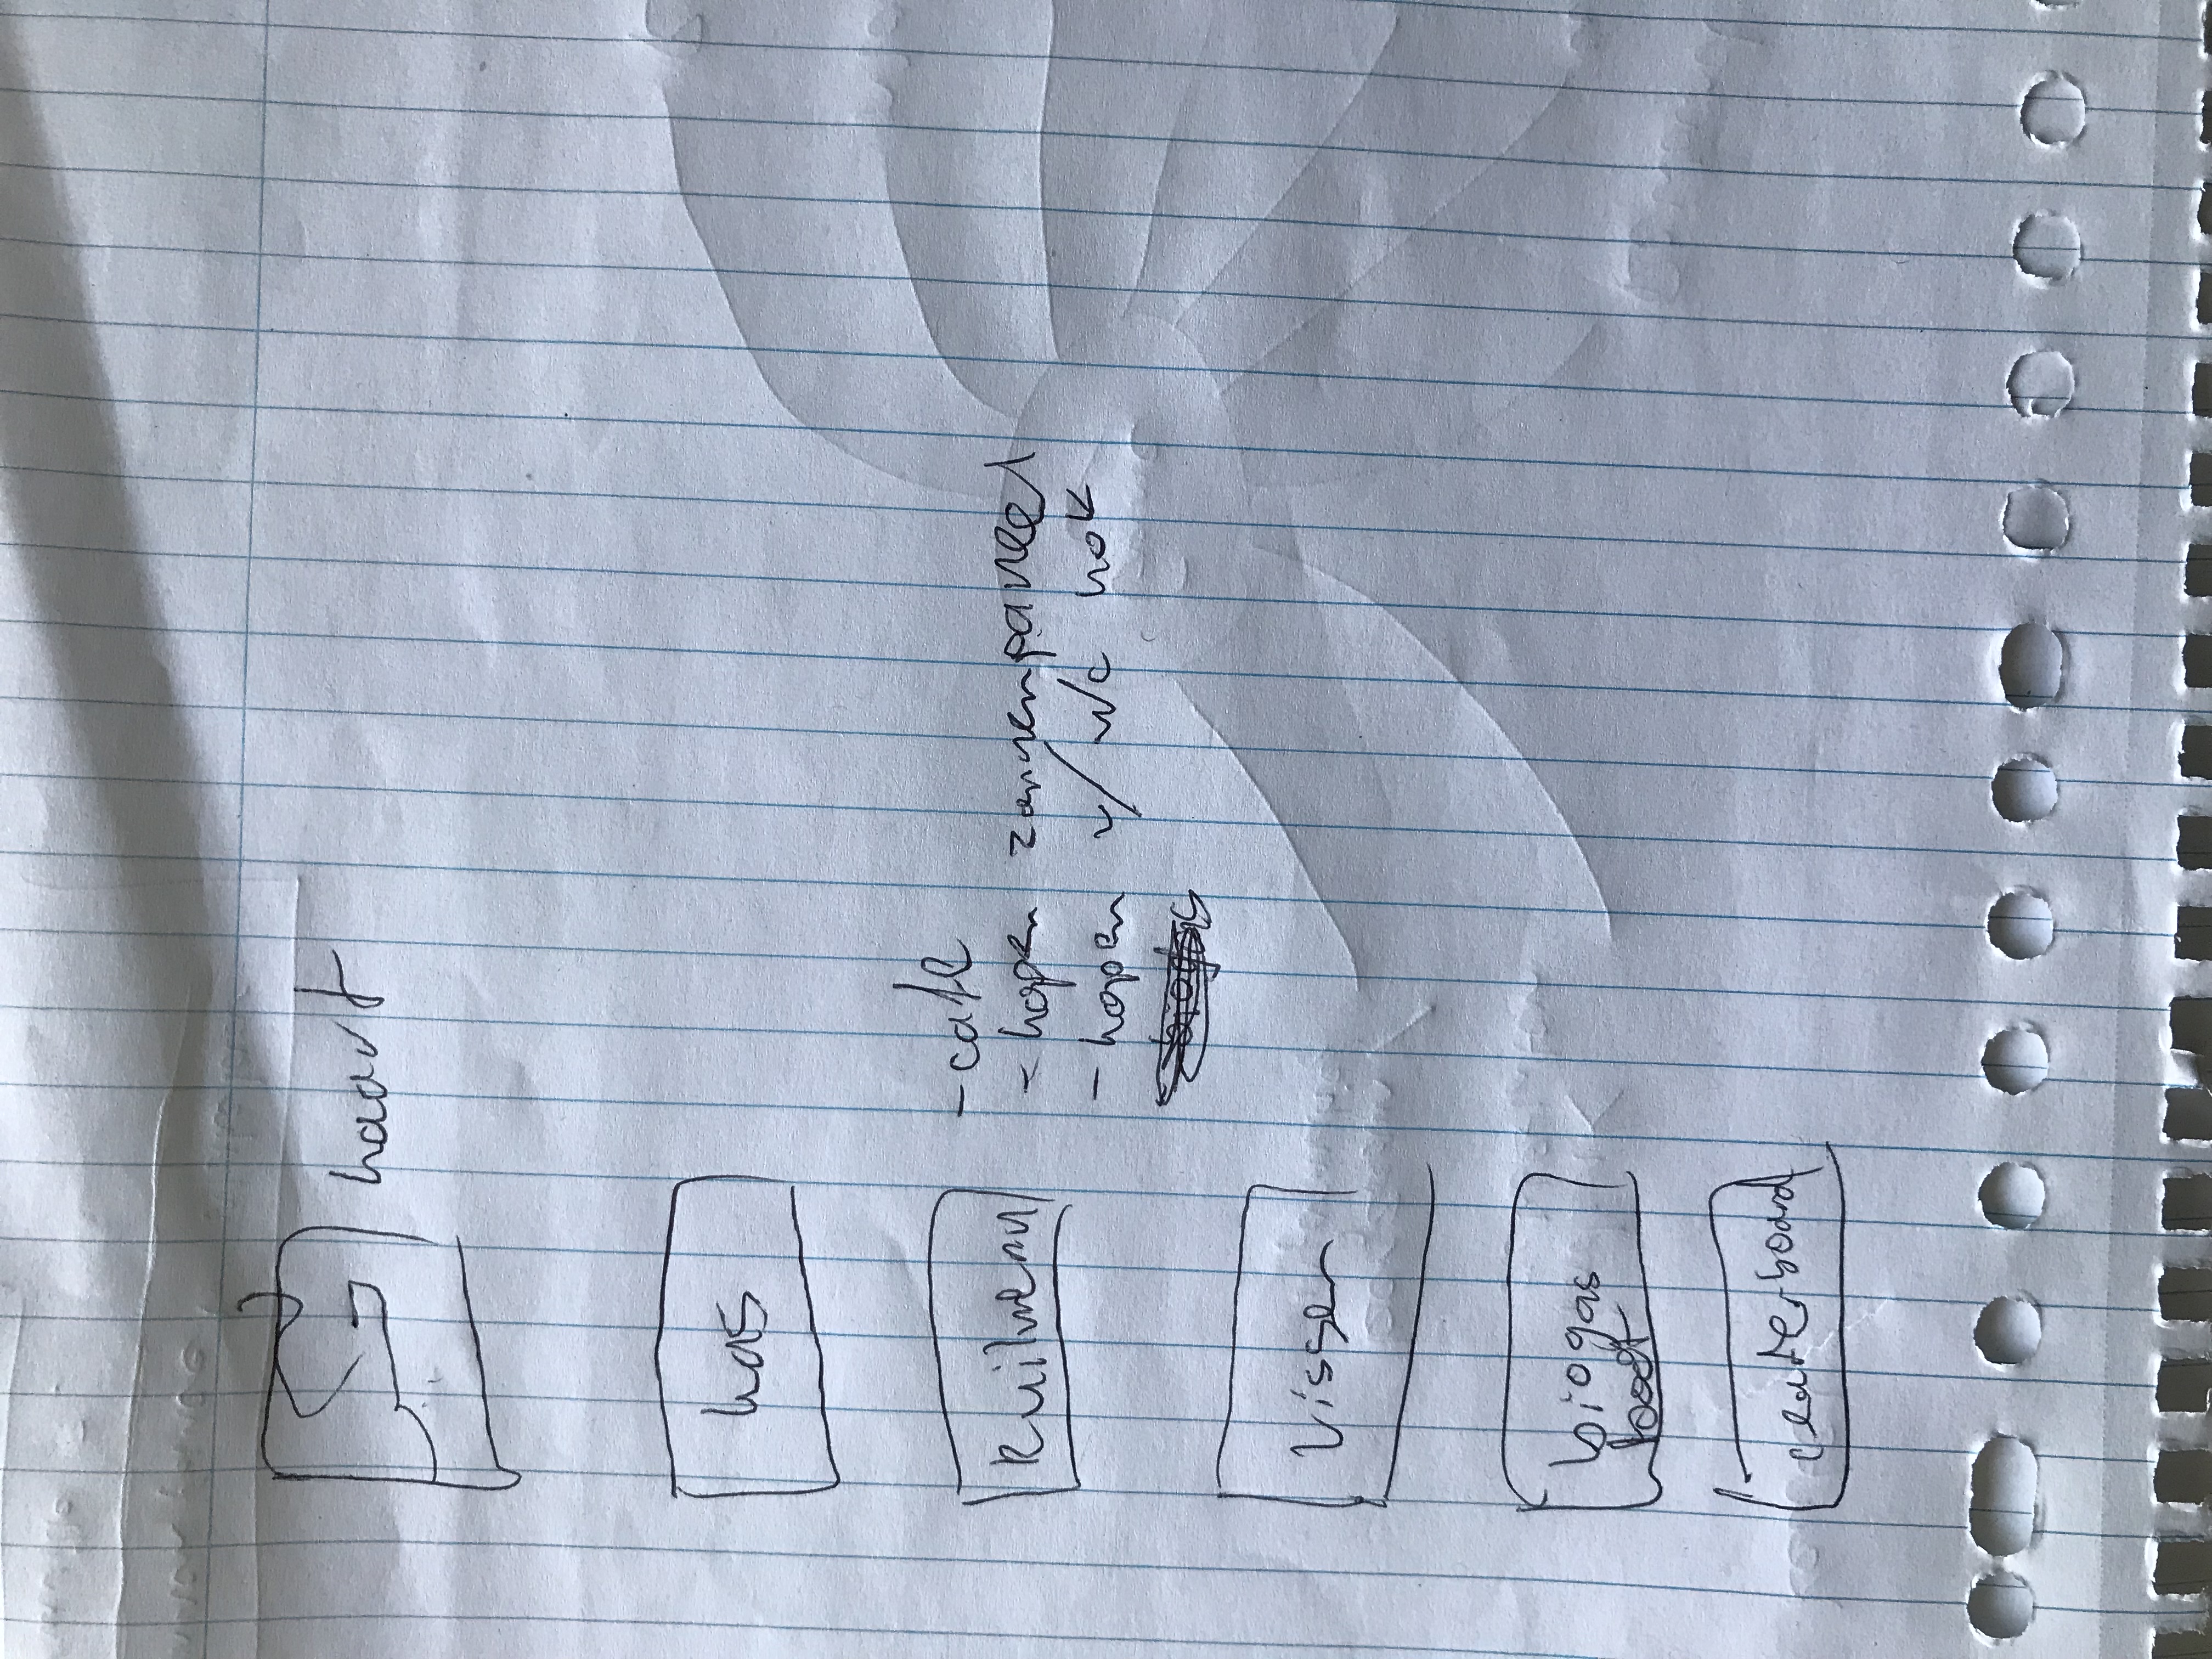 kaart
kas
Ruilmenu
- cafe
- kopen zonnenpaneel
- kopen v/ wc hok
biogas
Vissen
biogas
boot
leaderboard